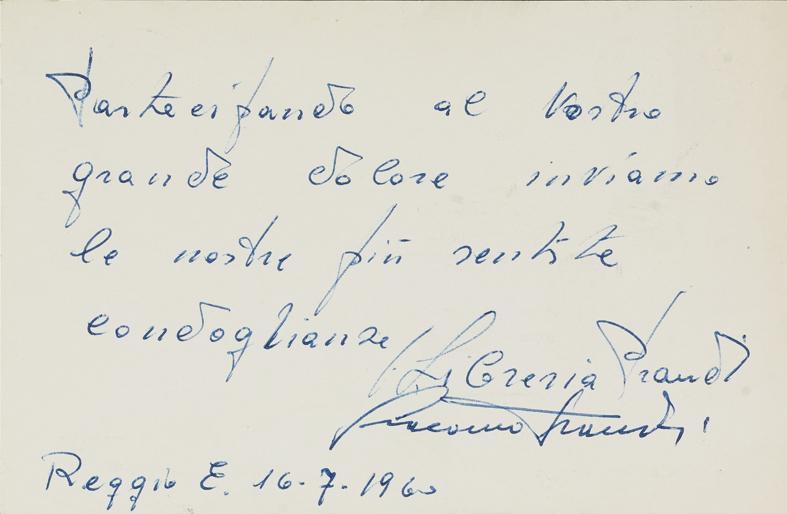 Partecipando al Vostro
grande dolore inviamo
le nostre più sentite
condoglianze
Libreria Prandi
Giacomo Prandi
Reggio E. 16-7-1960